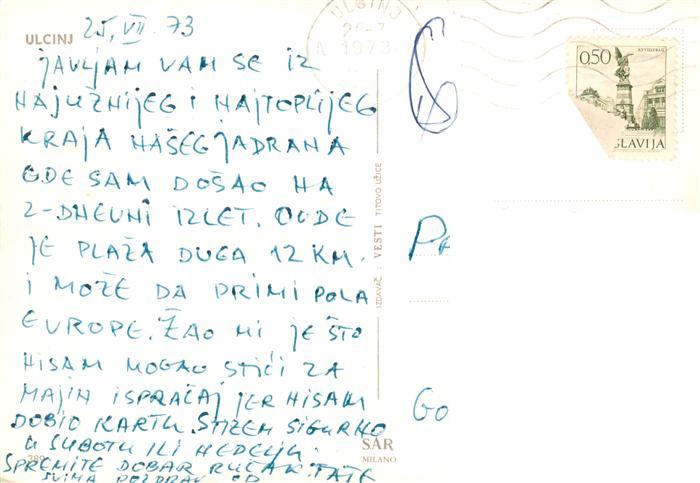 ULCINJ
25, VII. 73
JAVLJAM VAM SE IZ
NAJUŽNIJEG I NAJTOPLIJEG
KRAJA NAŠEG JADRANA
GDE SAM DOŠAO NA
2-DNEVNI IZLET. OVDE
JE PLAŽA DUGA 12 KM.
I MOŽE DA PRIMI POLA
EUROPE. ŽAO MI JE ŠTO
NISAM MOGAO STIĆI ZA
MAJIN ISPRAČAJ JER NISAM
DOBIO KARTU. STIŽEM SIGURNO
U SUBOTU ILI NEDELJU.
SPREMITE DOBAR RUČAK. TATE
SVIMA POZDRAV OD
389
IZDAVAČ: VESTI TITOVO UŽICE
SAR
MILANO
ULCINJ
1973
0,50
GLAVIJA
Go